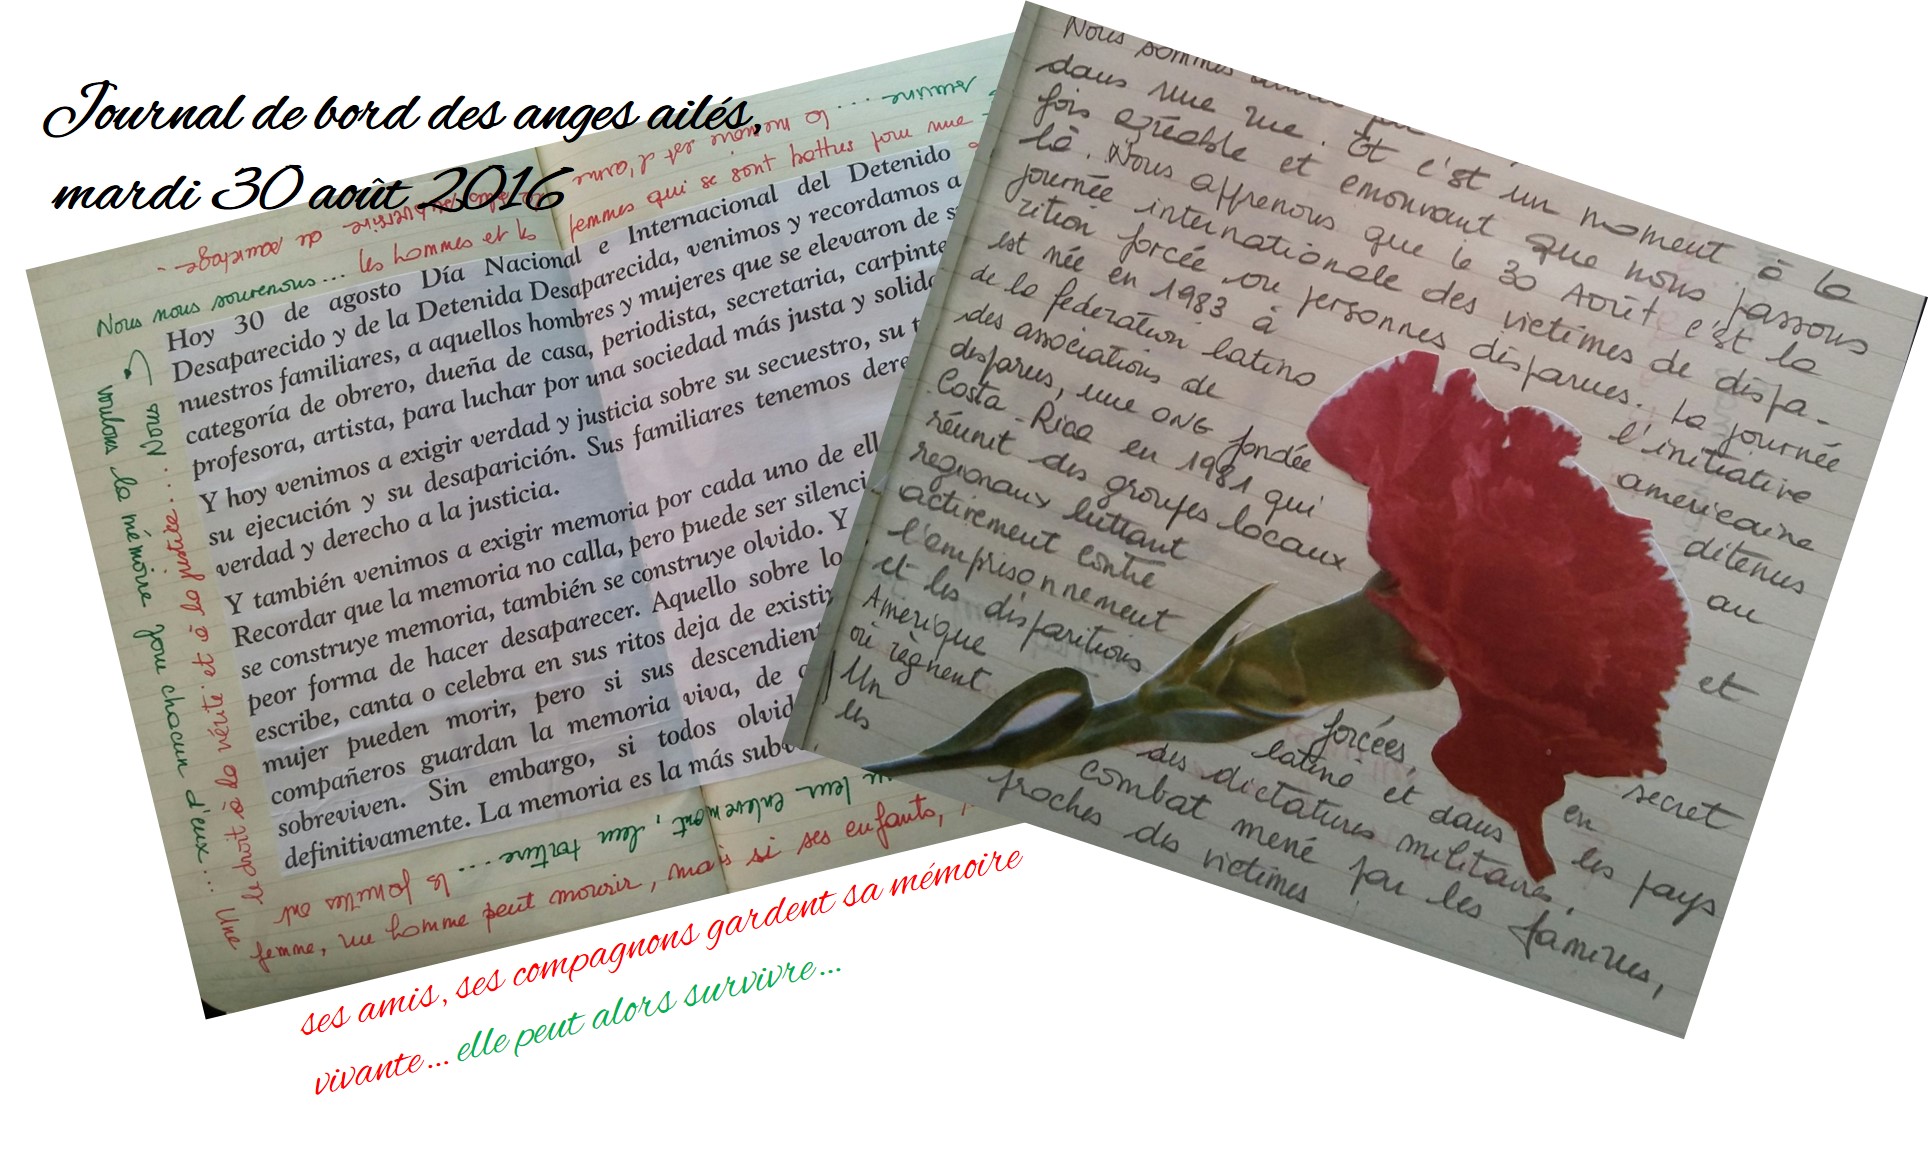 Journal de bord des anges ailés,
mardi 30 août 2016
la mémoire est l'arme
de partage.
Nous nous souvenons... les hommes et les femmes qui se sont battus pour une
Nous
voulons la mémoire pour chacun d'eux...
le droit à la vérité et à la justice...
Hoy 30 de agosto Día Nacional e Internacional del Detenido
Desaparecido y de la Detenida Desaparecida, venimos y recordamos a
nuestros familiares, a aquellos hombres y mujeres que se elevaron de s
categoría de obrero, dueña de casa, periodista, secretaria, carpinte
profesora, artista, para luchar por una sociedad más justa y solida
Y hoy venimos a exigir verdad y justicia sobre su secuestro, su t
su ejecución y su desaparición. Sus familiares tenemos dere
verdad y derecho a la justicia.
Y también venimos a exigir memoria por cada uno de ell
Recordar que la memoria no calla, pero puede ser silenci
se construye memoria, también se construye olvido. Y
peor forma de hacer desaparecer. Aquello sobre lo
escribe, canta o celebra en sus ritos deja de existir
mujer pueden morir, pero si sus descendient
compañeros guardan la memoria viva, de
sobreviven. Sin embargo, si todos olvid
definitivamente. La memoria es la más subv
leur enlèvement, leur torture...
la familles ont
Une
femme, un homme peut mourir, mais si ses enfants,
ses amis, ses compagnons gardent sa mémoire
vivante... elle peut alors survivre...
Nous sommes
dans une rue. Et c'est un moment à la
fois agréable et émouvant que nous passons
là. Nous apprenons que le 30 Août c'est la
journée internationale des victimes de dispa-
rition forcée ou personnes disparues. La journée
est née en 1983 à l'initiative
de la fédération latino américaine
des associations de détenus
disparus, une ONG fondée au
Costa-Rica en 1981 qui
réunit des groupes locaux et
régionaux luttant
activement contre
l'emprisonnement secret
et les disparitions forcées, en
Amérique latine et dans les pays
où règnent des dictatures militaires.
Un combat mené par les familles,
les proches des victimes